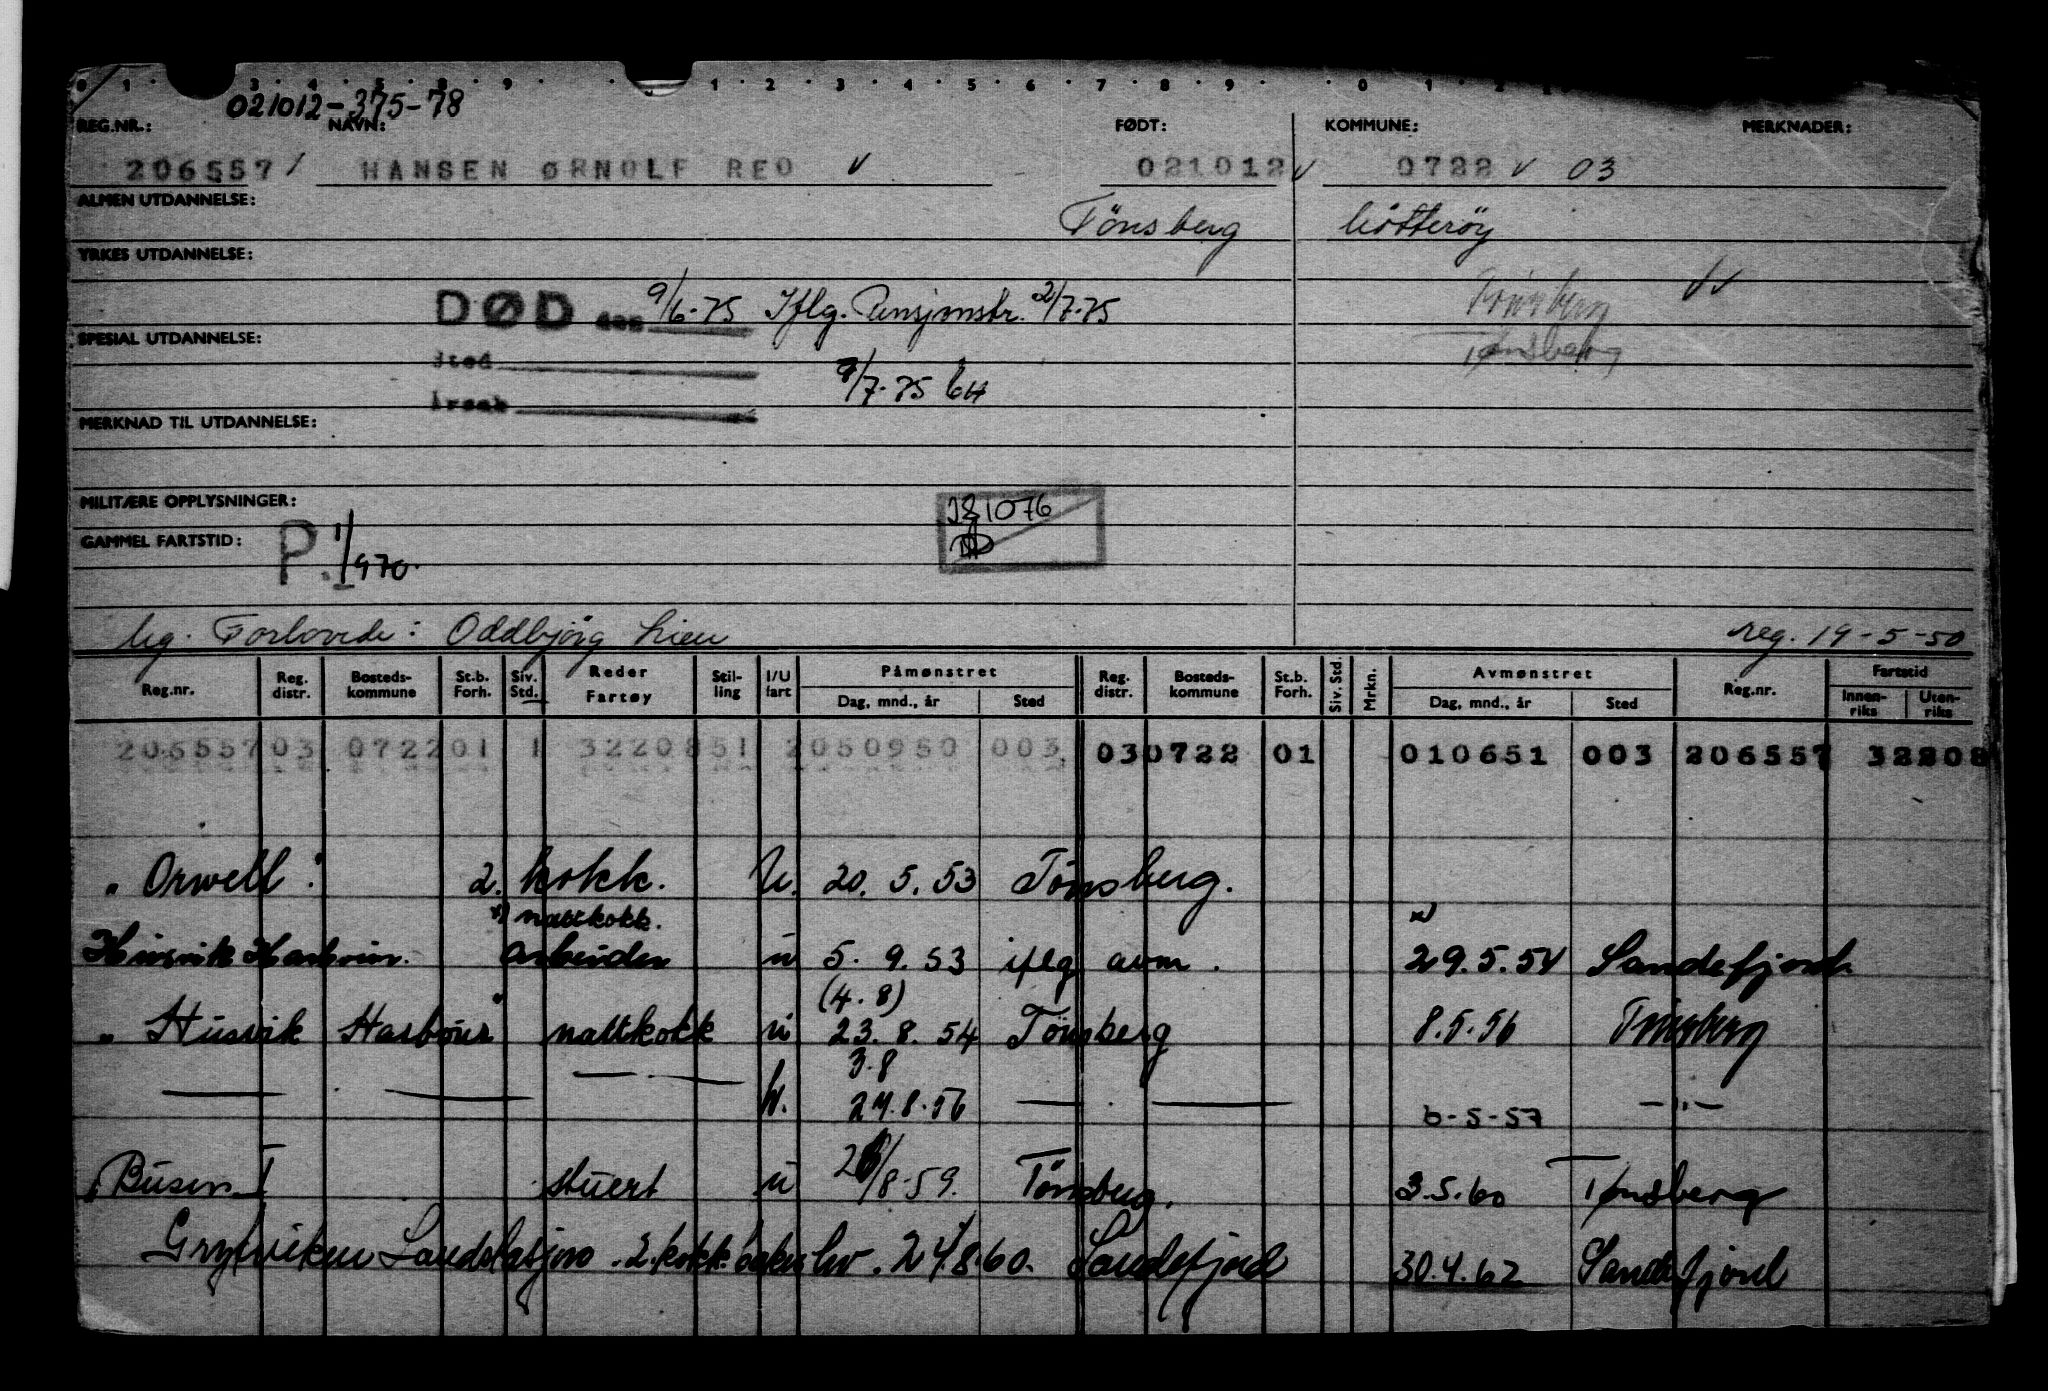 021012-375-78
REG.NR.: NAVN: FØDT: KOMMUNE: MERKNADER:
206557 / HANSEN ØRNULF REO v 021012 v 0722 v 03
ALMEN UTDANNELSE: Tönsberg Nötteröy
YRKES UTDANNELSE: Tönsberg
DØD den 9/6-75 Iflg. Pensjonstr. 2/7-75
SPESIAL UTDANNELSE: Tønsberg
Sted
Årsak 9/7-75
MERKNAD TIL UTDANNELSE:
MILITÆRE OPPLYSNINGER: 1076
GAMMEL FARTSTID: P. 1/1 970.
Forlovede: Oddbjörg Lien reg. 19-5-50
Reg.nr. Reg. distr. Bosteds-kommune St.b. Forh. Siv. Std. Reder Fartøy Stil-ling I/U fart Påmønstret Dag, mnd., år Sted Reg. distr. Bosteds-kommune St.b. Forh. Siv. Std. Mrkn. Avmønstret Dag, mnd., år Sted Reg.nr. Fartstid Innen-riks Uten-riks
206557 03 0722 01 1 3220851 2050950 003 03 0722 01 010651 003 206557 32208
"Orwell". 2. kokk. U. 20. 5. 53 Tönsberg.
x) nattkokk. x)
arbeider u 5. 9. 53 iflg avm. 29.5.54 Sandefjord
(4.8)
"Husvik Harbour" nattkokk u 23. 8. 54 Tönsberg 8.5.56 Tönsberg
3.8
24.8.56 6-5-57 —"—
"Busen I stuert u /8-59. Tönsberg. 3.5.60 Tønsberg
Grytviken Landstasjon. 2. kokk. 24/8 60. Sandefjord 30.4.62 Sandefjord